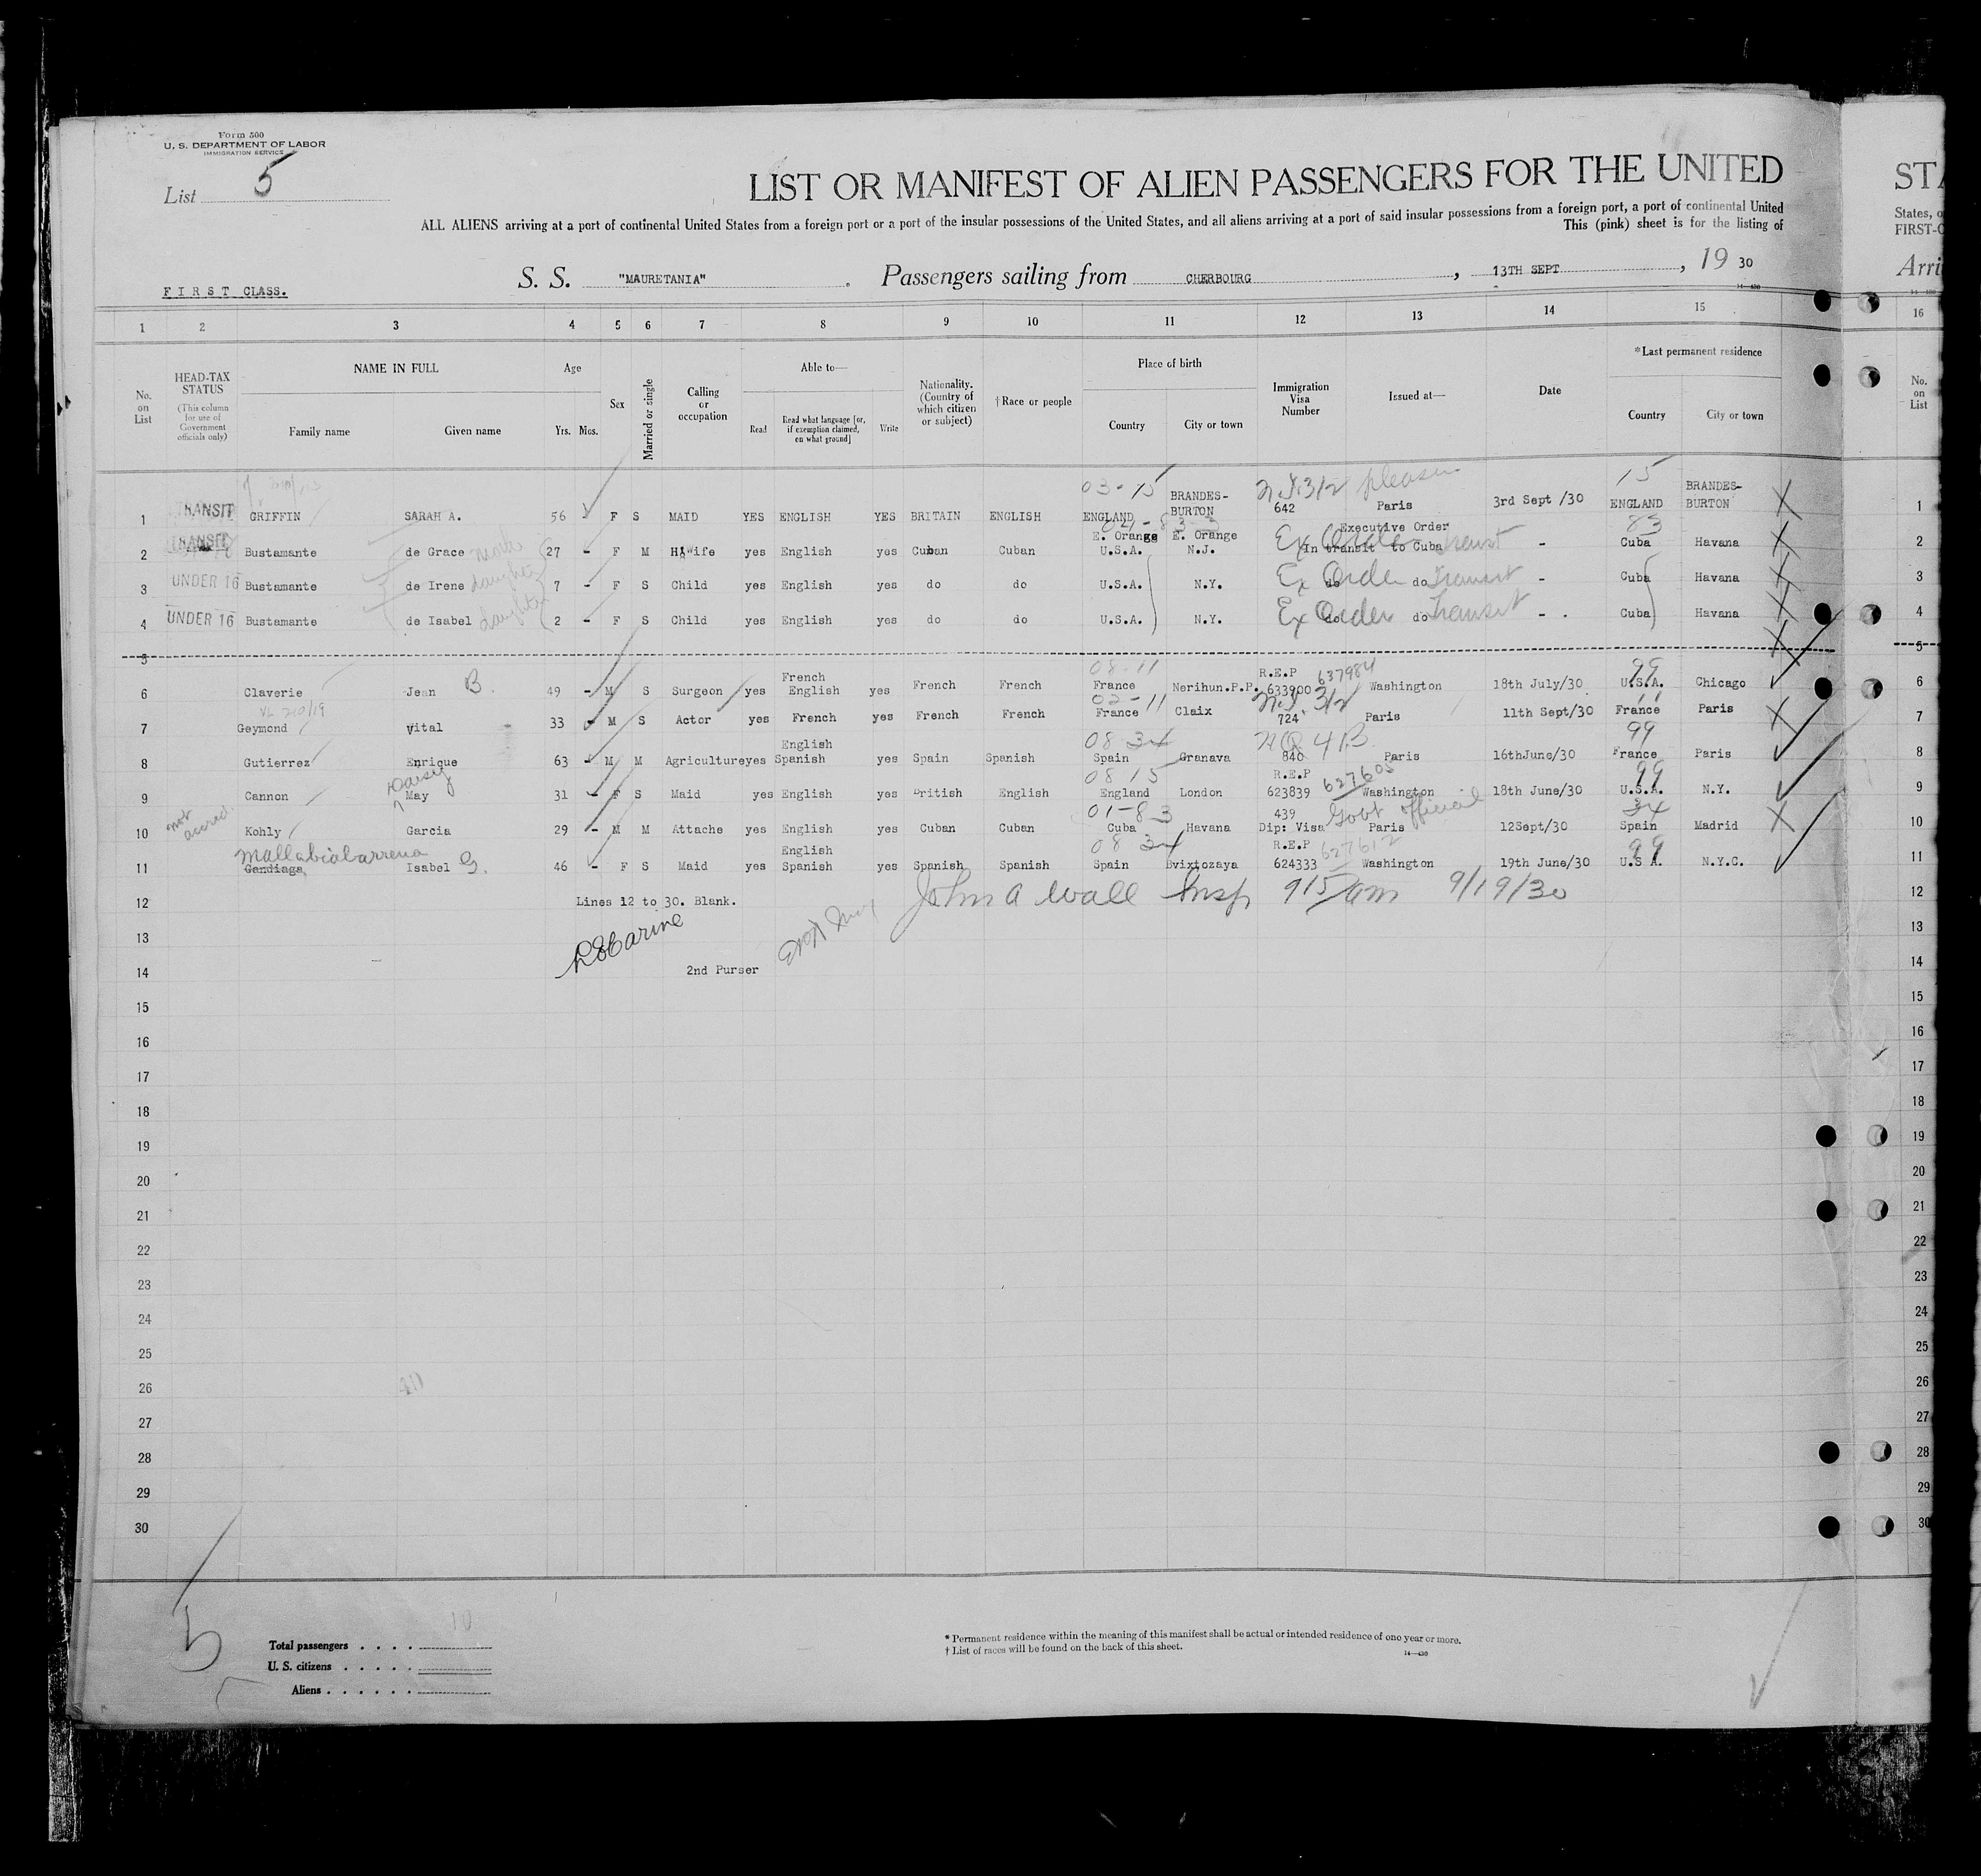 Form 500
U. S. DEPARTMENT OF LABOR
IMMIGRATION SERVICE
List 5
LIST OR MANIFEST OF ALIEN PASSENGERS FOR THE UNITED
STA
ALL ALIENS arriving at a port of continental United States from a foreign port or a port of the insular possessions of the United States, and all aliens arriving at a port of said insular possessions from a foreign port, a port of continental United
States, o
This (pink) sheet is for the listing of
FIRST-C
FIRST CLASS.
S. S. "MAURETANIA" , Passengers sailing from CHERBOURG , 13TH SEPT , 19 30
Arri
1 2 3 4 5 6 7 8 9 10 11 12 13 14 15 16
No. on List
HEAD-TAX STATUS (This column for use of Government officials only)
NAME IN FULL Family name Given name
Age Yrs. Mos.
Sex
Married or single
Calling or occupation
Able to— Read Read what language [or, if exemption claimed, on what ground] Write
Nationality. (Country of which citizen or subject)
†Race or people
Place of birth Country City or town
Immigration Visa Number
Issued at—
Date
*Last permanent residence Country City or town
No. on List
03-15 15
1 TRANSIT GRIFFIN SARAH A. 56 F S MAID YES ENGLISH YES BRITAIN ENGLISH ENGLAND BRANDES-BURTON 642 Paris 3rd Sept /30 ENGLAND BRANDES-BURTON 1
2 TRANSIT Bustamante de Grace 27 - F M H wife yes English yes Cuban Cuban E. Orange U.S.A. E. Orange N.J. Executive Order In transit to Cuba Ex Order Transit - 83 Cuba Havana 2
3 UNDER 16 Bustamante de Irene daughter 7 - F S Child yes English yes do do U.S.A. N.Y. do do Ex Order Transit - Cuba Havana 3
4 UNDER 16 Bustamante de Isabel daughter 2 - F S Child yes English yes do do U.S.A. N.Y. do do Ex Order Transit - Cuba Havana 4
5 5
08-11 637984 99
6 Claverie Jean B. 49 - M S Surgeon yes French English yes French French France Nerihun.P.P. R.E.P 633900 Washington 18th July/30 U.S.A. Chicago 6
02-11 11
7 Geymond Vital 33 - M S Actor yes French yes French French France Claix 724 Paris 11th Sept/30 France Paris 7
08 34 NQ 4B 99
8 Gutierrez Enrique 63 - M M Agriculture yes English Spanish yes Spain Spanish Spain Granava 840 Paris 16thJune/30 France Paris 8
08 15 627605 99
9 Cannon Daisy May 31 - F S Maid yes English yes British English England London R.E.P 623839 Washington 18th June/30 U.S.A. N.Y. 9
01-83 Govt Official 34
10 not accred. Kohly Garcia 29 - M M Attache yes English yes Cuban Cuban Cuba Havana 439 Dip: Visa Paris 12Sept/30 Spain Madrid 10
08 34 627612 99
11 Mallabiabarrena Gandiaga Isabel G. 46 - F S Maid yes English Spanish yes Spanish Spanish Spain Bvixtozaya R.E.P 624333 Washington 19th June/30 U.S A. N.Y.C. 11
12 Lines 12 to 30. Blank. John A Wall Insp 915 am 9/19/30 12
13 13
14 2nd Purser 14
15 15
16 16
17 17
18 18
19 19
20 20
21 21
22 22
23 23
24 24
25 25
26 26
27 27
28 28
29 29
30 30
5
Total passengers . . . . 10
U. S. citizens . . . . .
Aliens . . . . . .
* Permanent residence within the meaning of this manifest shall be actual or intended residence of one year or more.
† List of races will be found on the back of this sheet.
14—430